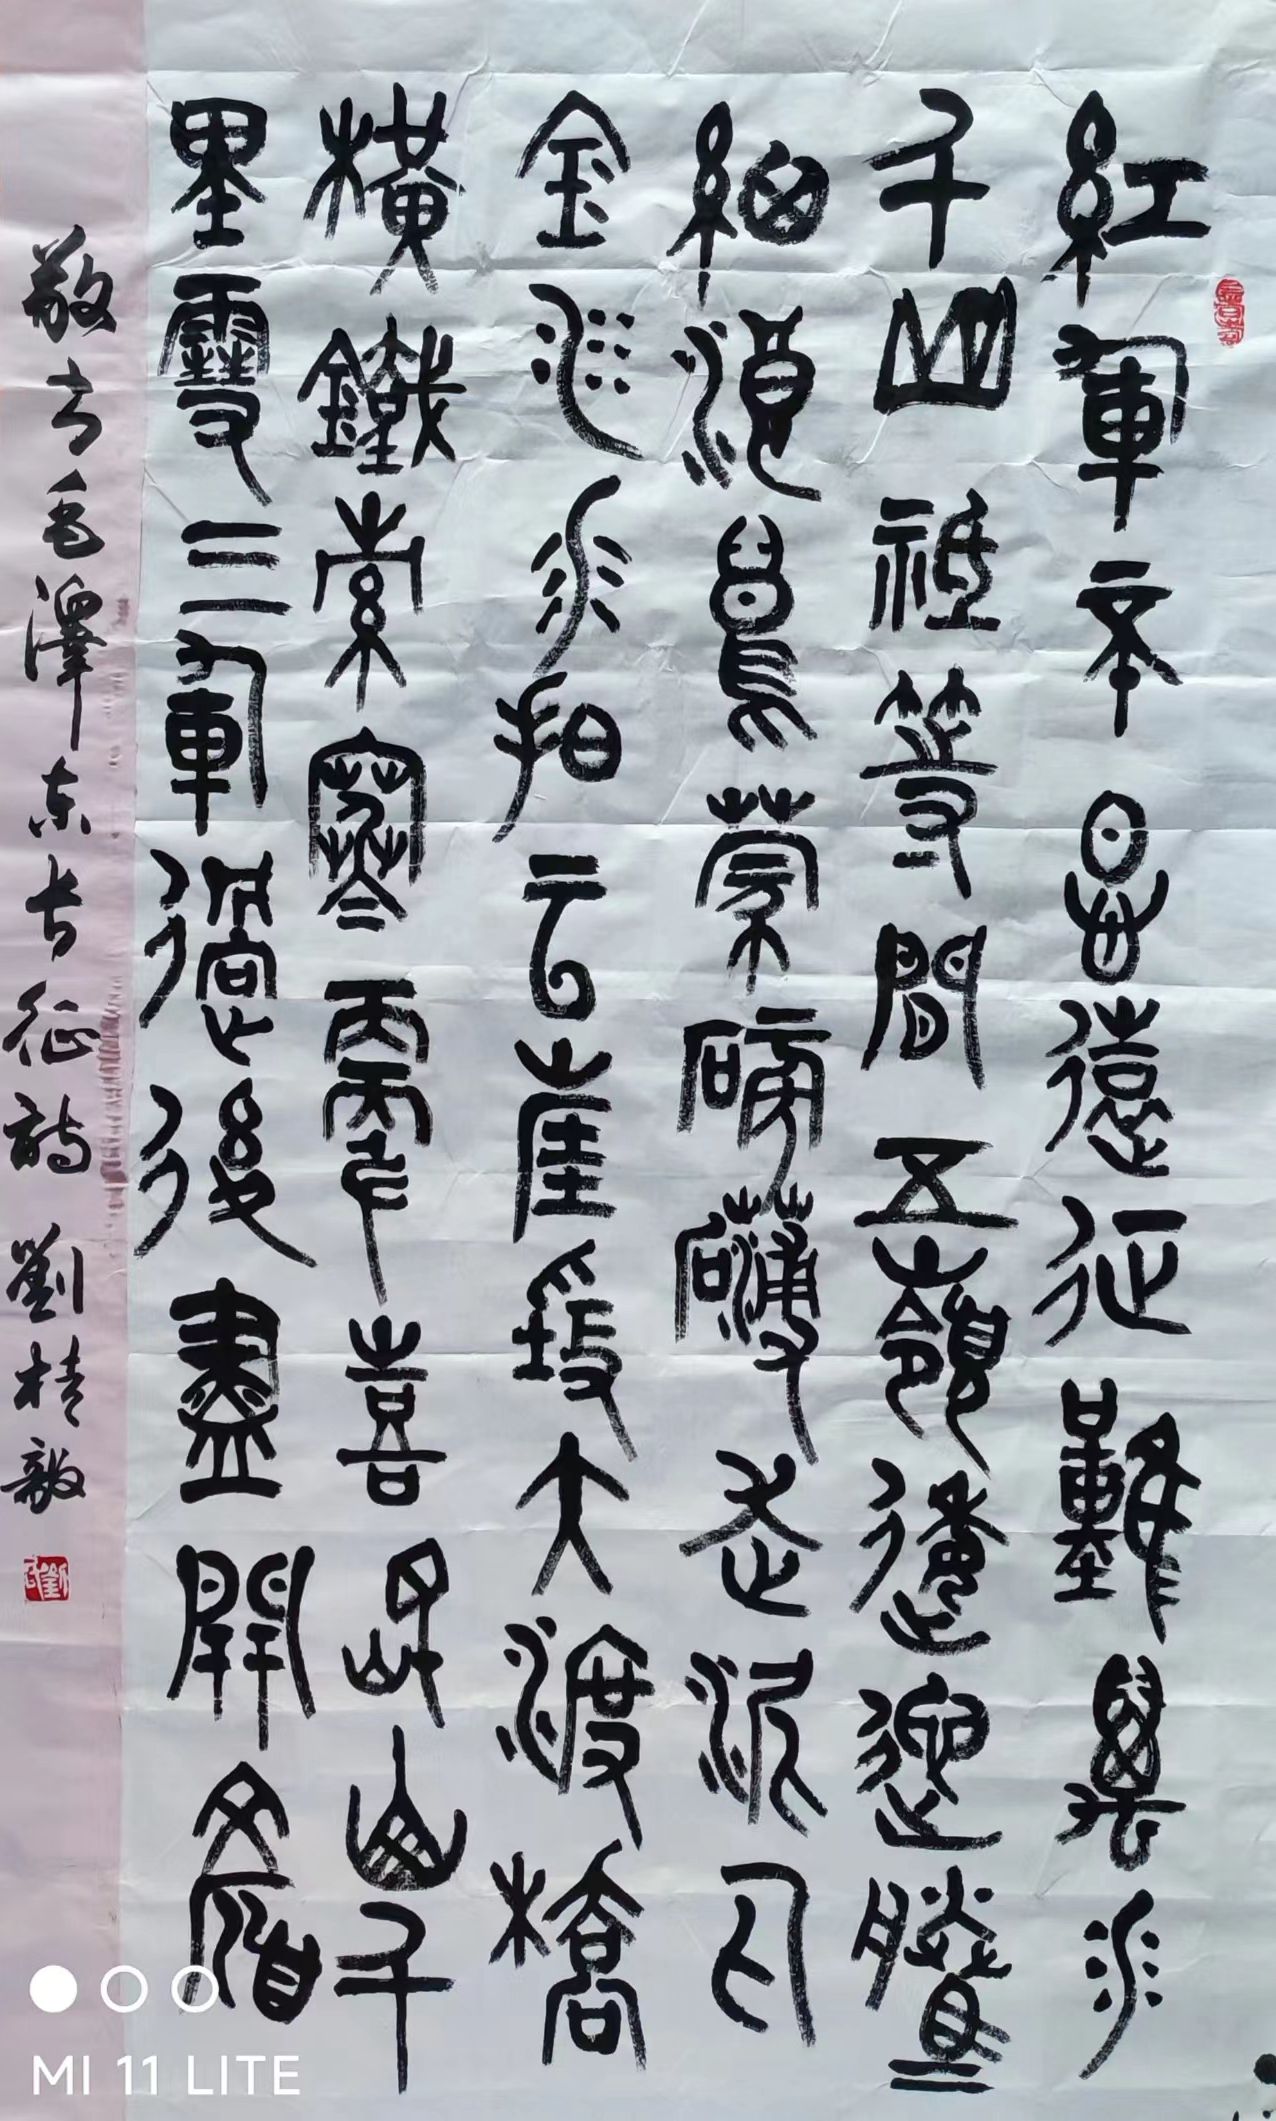 紅軍不畏遠征難萬水
千山祇等閒五嶺逶迤騰
細浪烏蒙磅礴走泥丸
金沙水拍云崖暖大渡橋
橫鐵索寒更喜岷山千
里雪三軍過後盡開顏
敬书毛澤东长征詩 劉桂敏
劉氏
MI 11 LITE